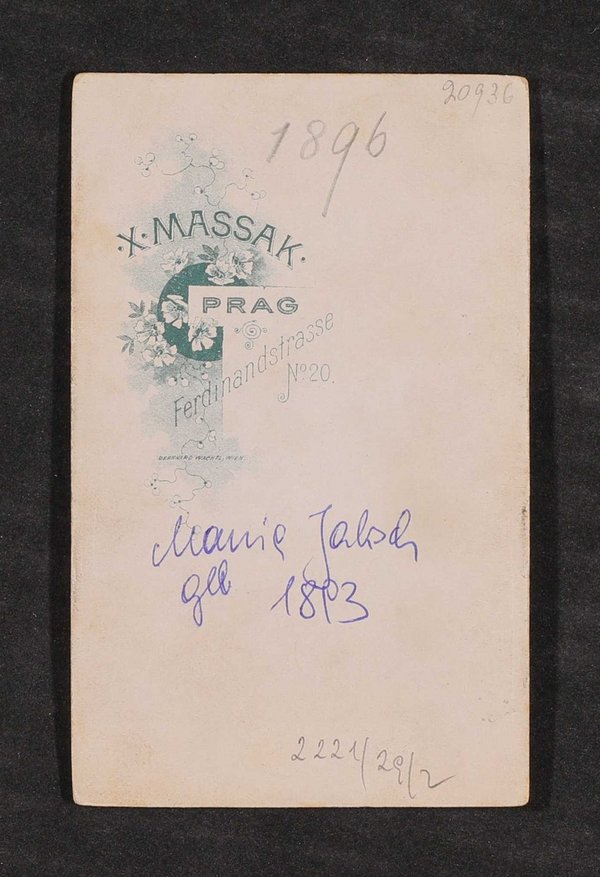 20936
1896
·X·MASSAK·
PRAG
Ferdinandstrasse
No 20.
BERNHARD WACHTL, WIEN.
Jaksch
geb 1893
2221/29/2